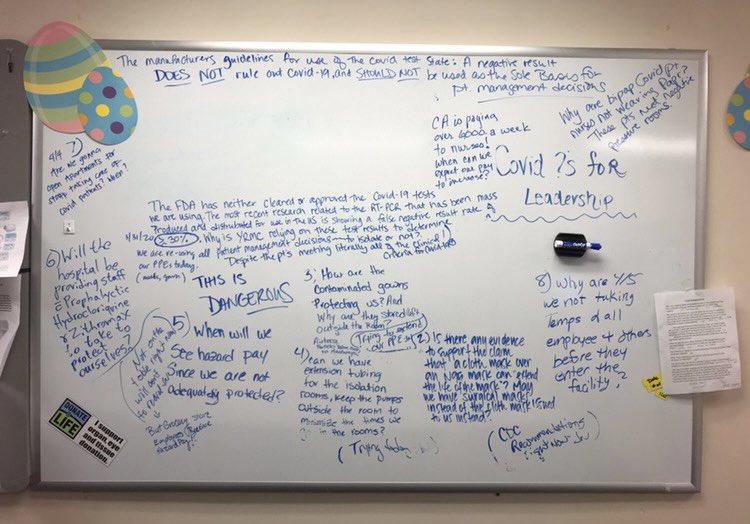 The manufacturers guidelines for use of the covid test state: A negative result
DOES NOT rule out Covid-19, and SHOULD NOT be used as the Sole Basis for
pt. management decisions
Why are bipap Covid pt.
nurses not wearing Papr?
These pts need negative
pressure rooms
CA is paying
over 6000 a week
to nurses!
when can we
expect our pay
to increase?
Covid ?s for
Leadership
4/4 7)
Are we gonna
open Apartments for
staff taking care of
Covid patients? When?
The FDA has neither cleared or approved the Covid-19 tests
we are using. The most recent research related to the RT-PCR that has been mass
Produced and distributed for use in the US is showing a false negative result rate of
3/31/20 ≥30%. Why is YRMC relying on these test results to determine
all patient management decisions — to isolate or not?
Despite the pt's meeting literally all the clinical
criteria for
We are re-using
our PPEs today.
(masks, gowns)
THIS IS
DANGEROUS
6) Will the
hospital be
providing staff
c Prophalyctic
Hydrocloriquine
r Zithromax
to take to
protect
ourselves?
5)
When will we
See hazard pay
Since we are not
adequately protected?
Not on the
table right now
But Grocery Store
Employees Receive
Hazard Pay
3) How are the
contaminated gowns
Protecting us? And
Why are they stored
Outside the Room?
(Trying to extend
PPE)
4) Can we have
extension tubing
for the isolation
rooms, keep the pumps
outside the room to
minimize the times we
go in the rooms?
(Trying today
2) Is there any evidence
to support the claim
that a cloth mask over
an N95 mask can extend
the life of the mask? May
we have surgical masks
instead of the cloth mask issued
to us instead?
(CDC
Recommendations
right now
8) Why are 4/5
we not taking
Temps of all
employee & others
before they
enter the
facility?
EXPO
DONATE
LIFE
I support
organ, eye
and tissue
donation.